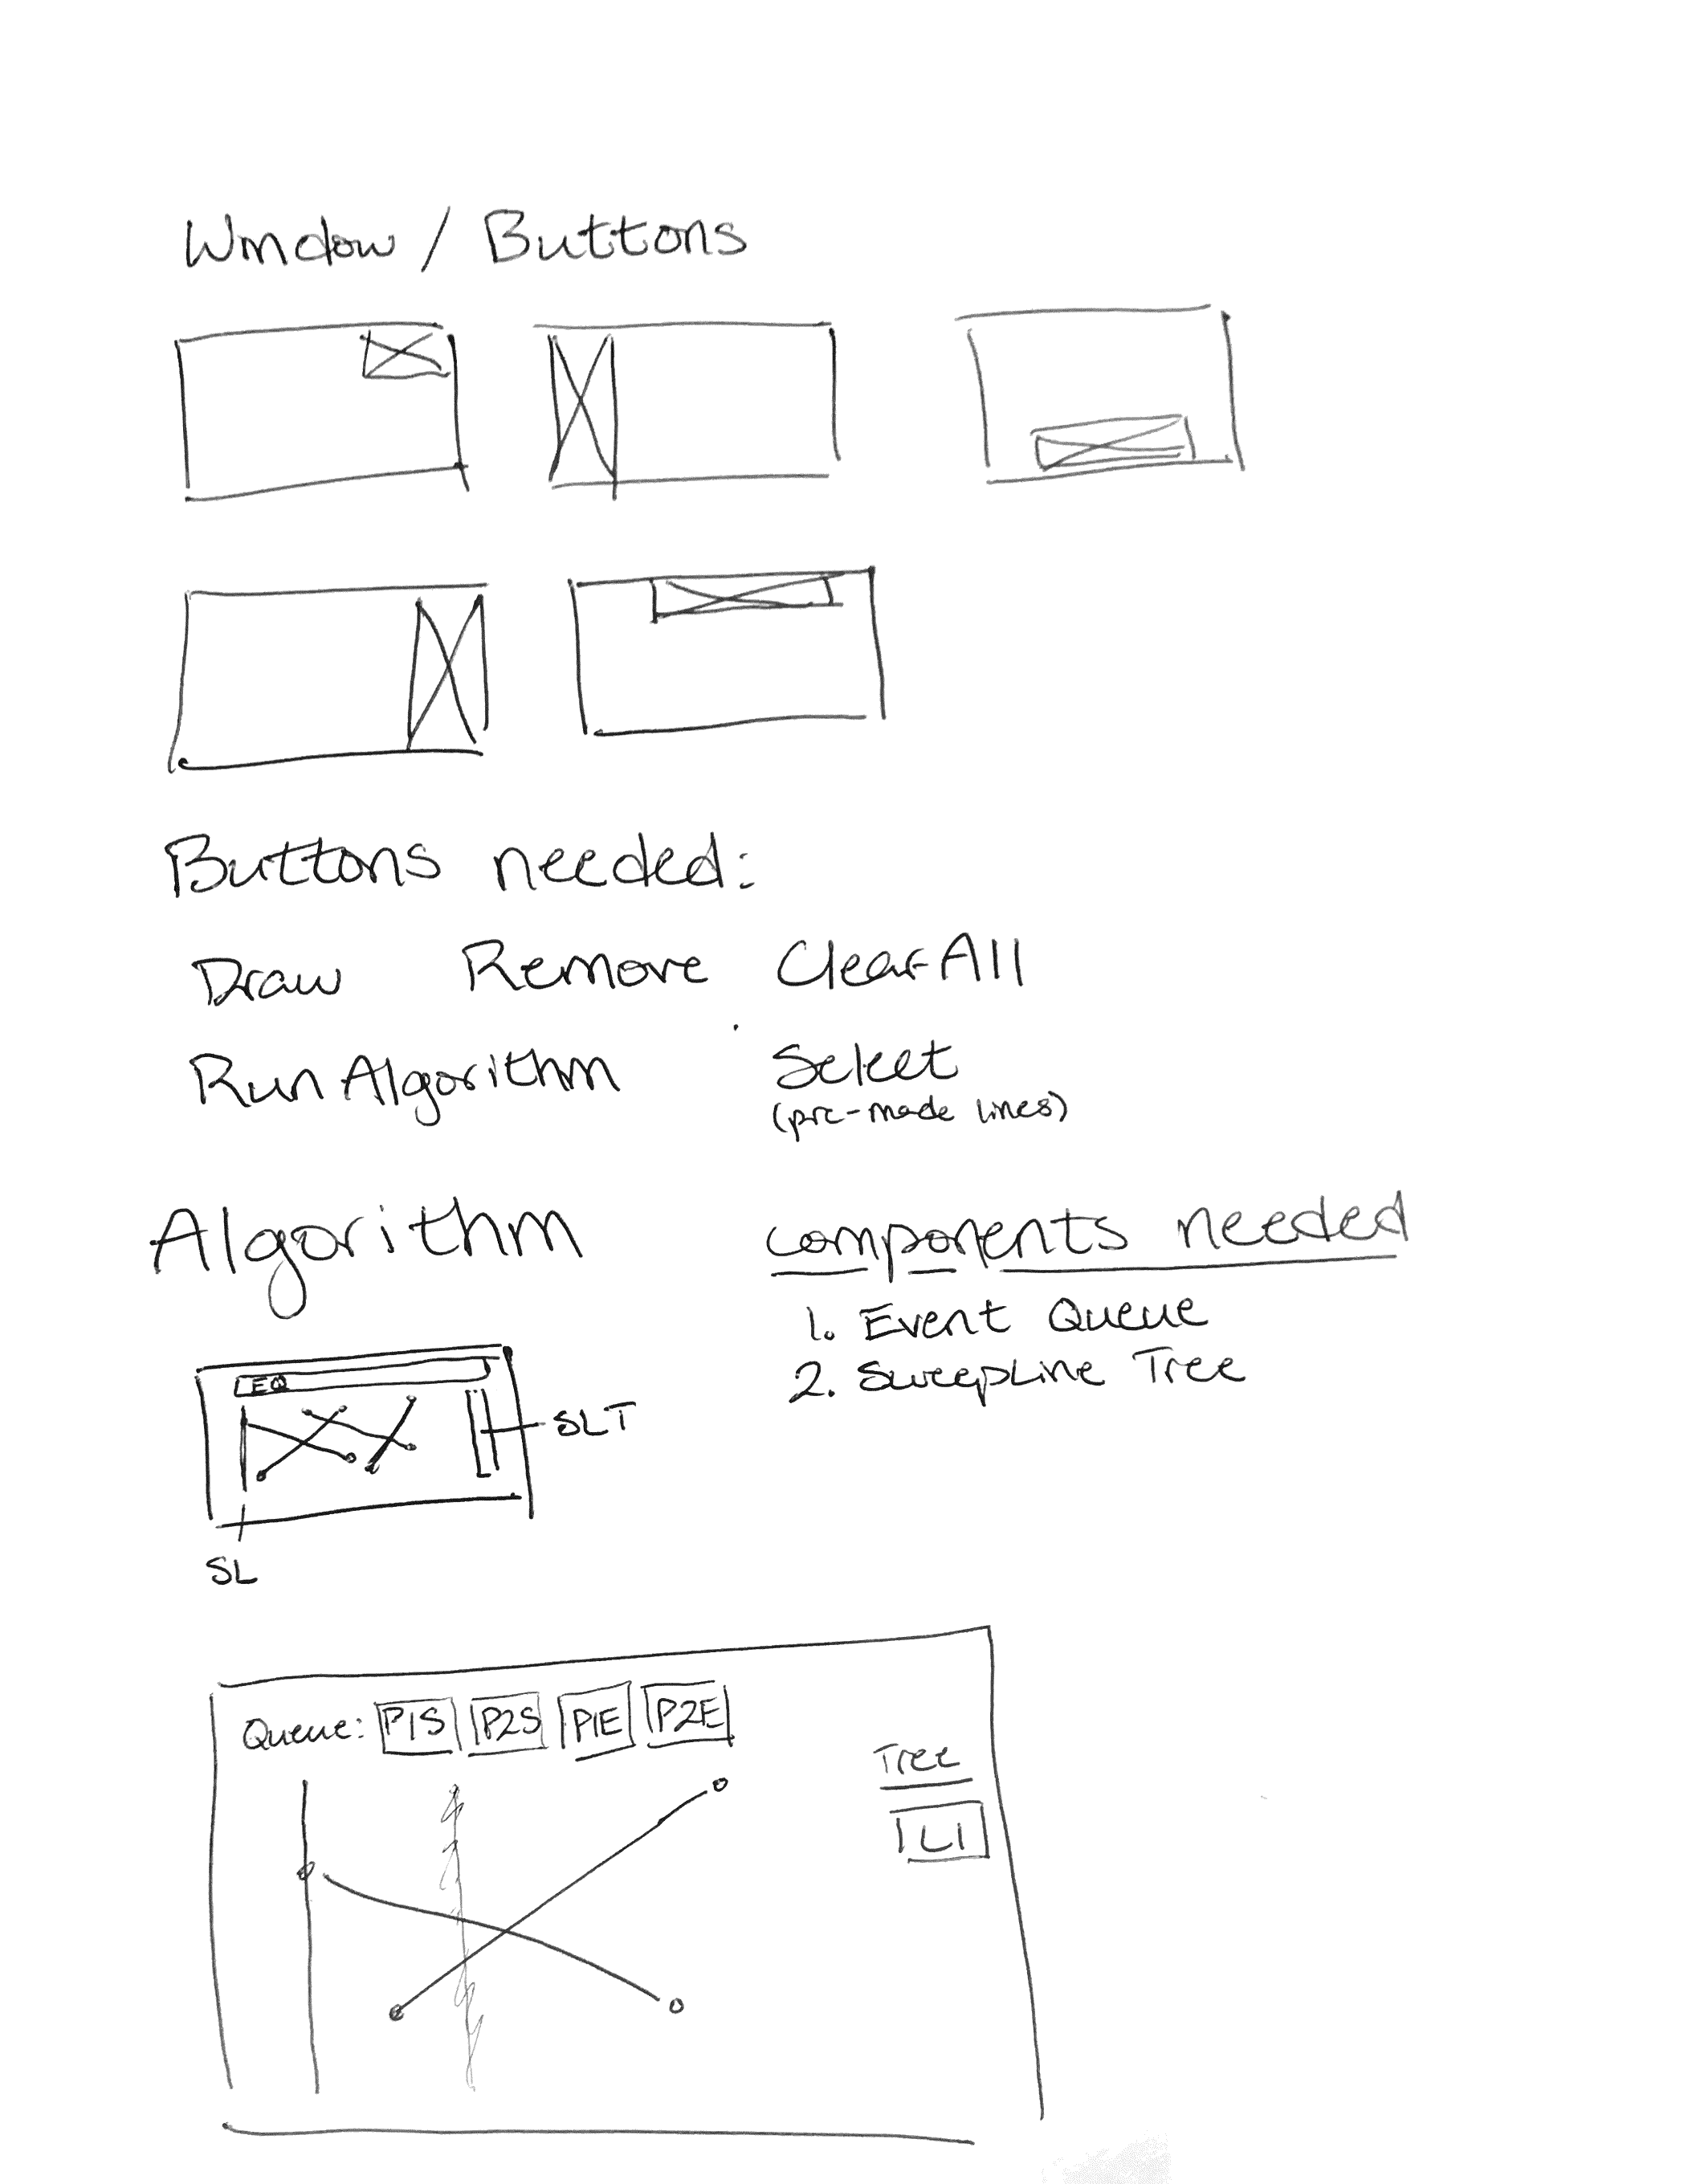 Window / Buttons
Buttons needed:
Draw Remove Clear All
Run Algorithm Select
(pre-made lines)
Algorithm components needed
1. Event Queue
2. Sweepline Tree
EQ
SLT
SL
Queue: P1S P2S P1E P2E
Tree
L1